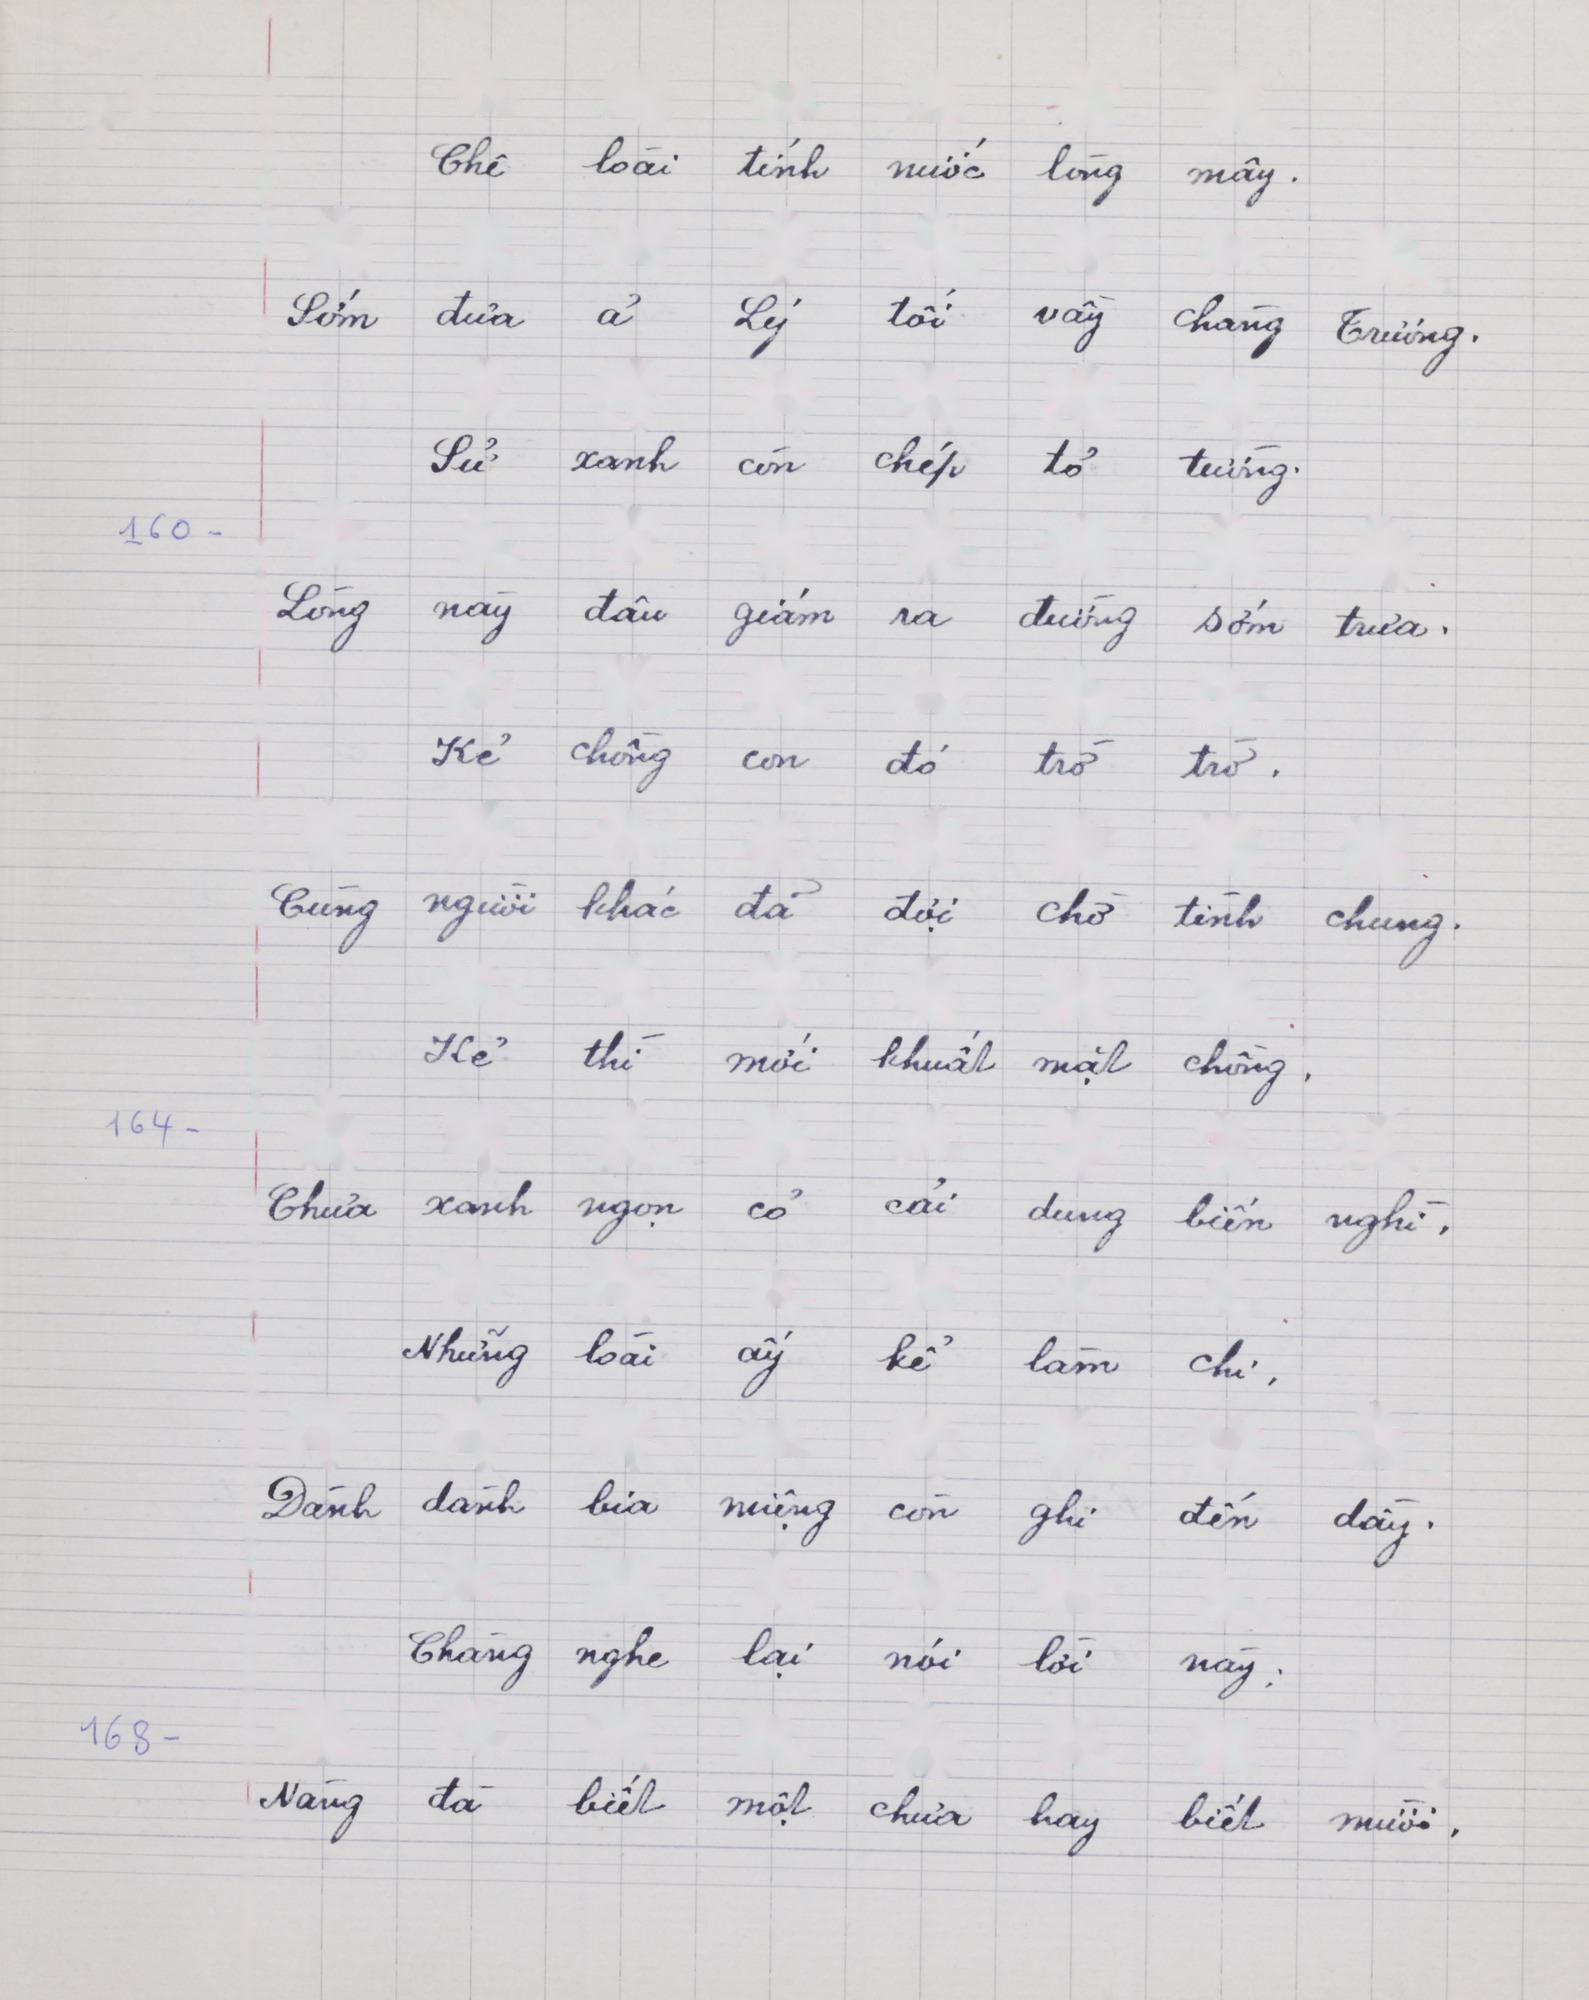 Chê loài tính nước lòng mây.
Sớm đưa ả Lý tối vầy chàng Trương.
Sử xanh còn chép tỏ tường.
160-
Lòng này đâu giám ra đường sớm trưa.
Kẻ chồng con đó trờ trờ.
Cùng người khác đả đợi chờ tình chung.
Kẻ thì mới khuất mặt chồng,
164-
Chưa xanh ngọn cỏ cải dung biến nghì,
Những loài ấy kể làm chi,
Dành dành bia miệng còn ghi đến dầy.
Chàng nghe lại nói lời này;
168-
Nàng đà biết một chưa hay biết mười,